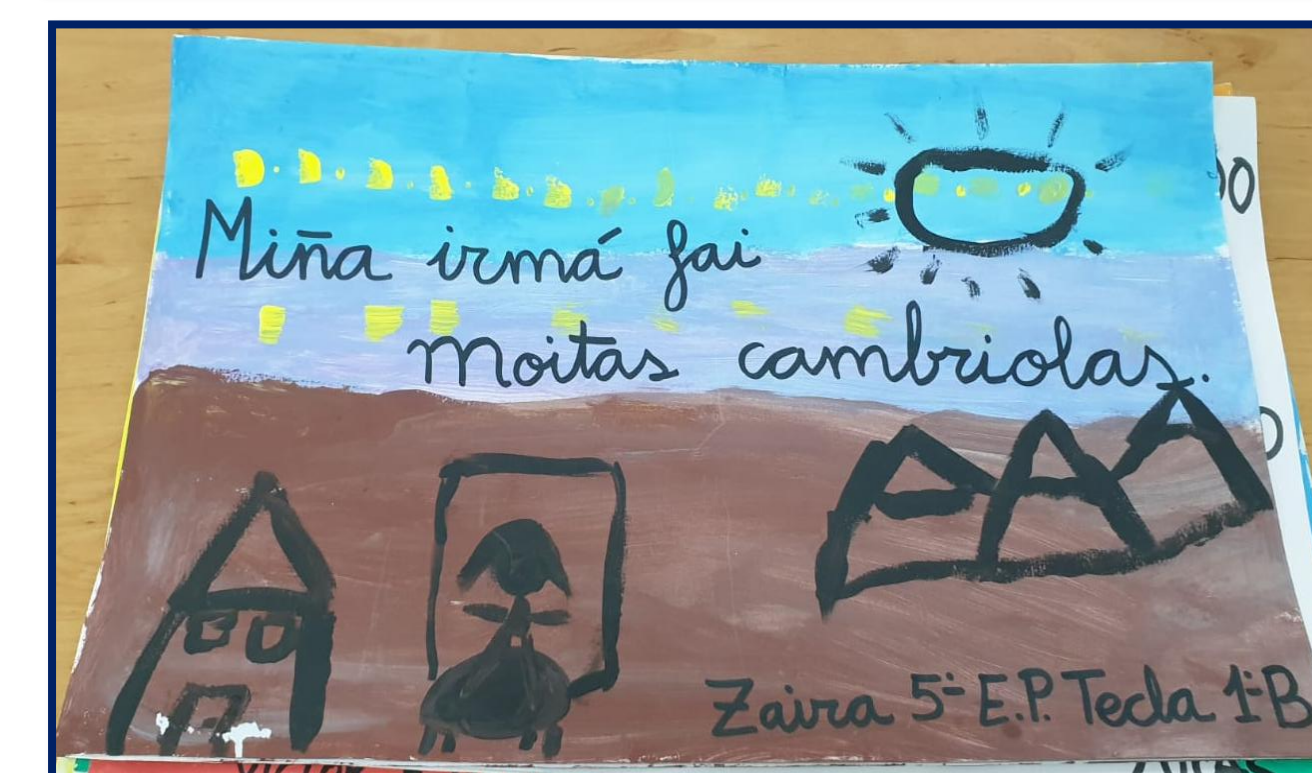 Miña irmá fai
moitas cambriolas.
Zaira 5º E.P. Tecla 1º B